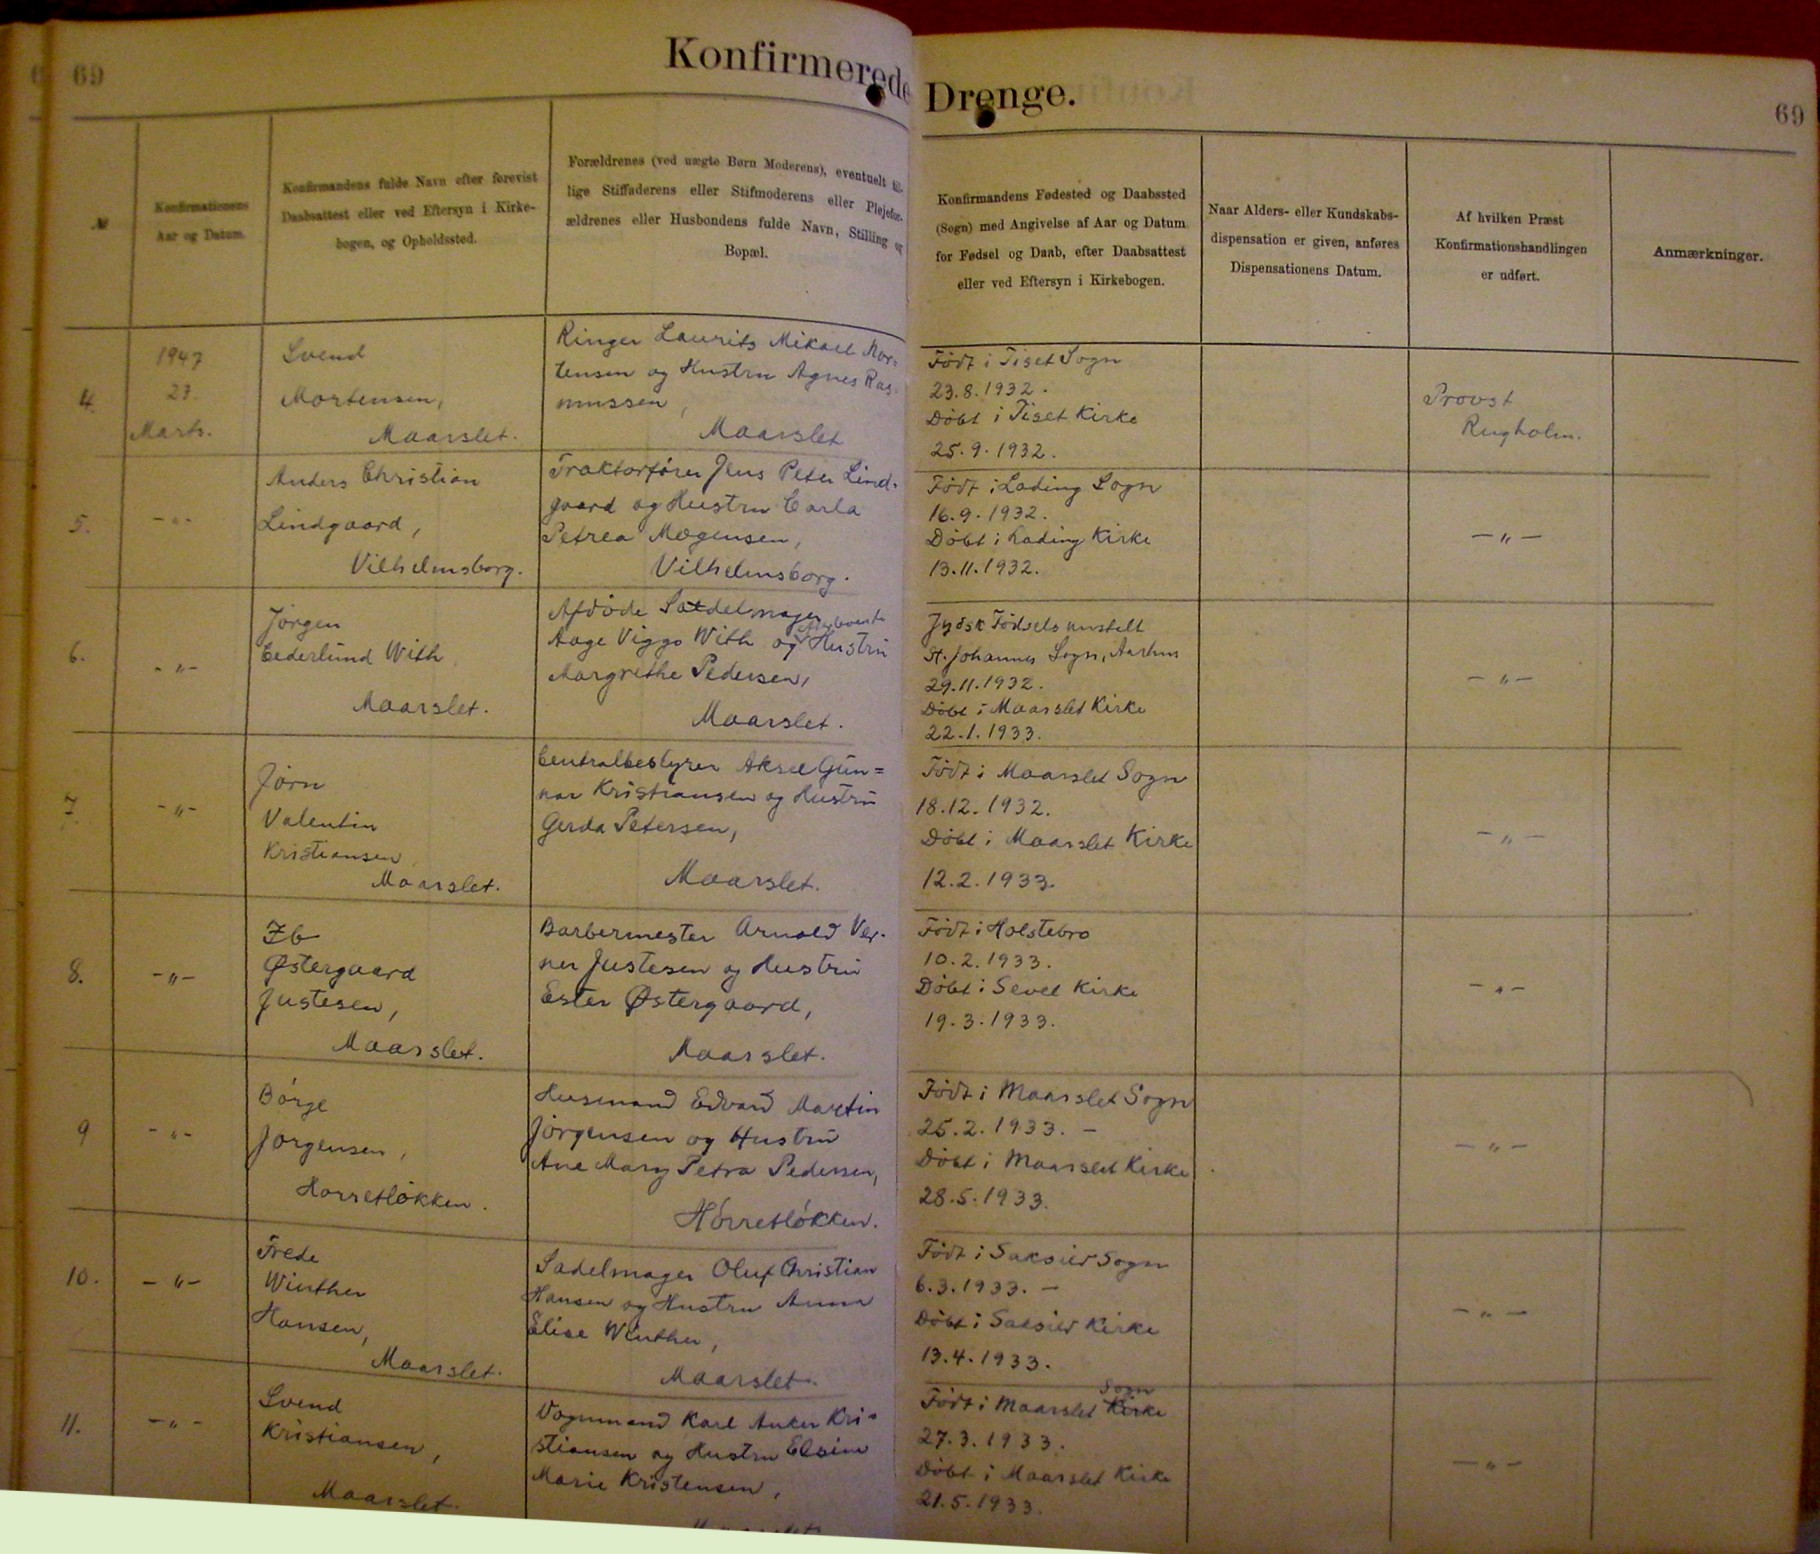 69
Konfirmerede
Drenge.
69
№
Konfirmationens
Aar og Datum.
Konfirmandens fulde Navn efter forevist
Daabsattest eller ved Eftersyn i Kirke-
bogen, og Opholdssted.
Forældrenes (ved uægte Børn Moderens), eventuelt til-
lige Stiffaderens eller Stifmoderens eller Plejefor-
ældrenes eller Husbondens fulde Navn, Stilling og
Bopæl.
Konfirmandens Fødested og Daabssted
(Sogn) med Angivelse af Aar og Datum
for Fødsel og Daab, efter Daabsattest
eller ved Eftersyn i Kirkebogen.
Naar Alders- eller Kundskabs-
dispensation er given, anføres
Dispensationens Datum.
Af hvilken Præst
Konfirmationshandlingen
er udført.
Anmærkninger.
4.
1947
23.
Marts.
Svend
Mortensen,
Maarslet.
Ringer Laurits Mikael Mor=
tensen og Hustru Agnes Ras-
mussen,
Maarslet
Født i Tiset Sogn
23.8.1932.
Døbt i Tiset Kirke
25.9.1932.
Provst
Rugholm.
5.
-"-
Anders Christian
Lindgaard,
Vilhelmsborg.
Traktorfører Jens Peter Lind-
gaard og Hustru Carla
Petrea Mogensen,
Vilhelmsborg.
Født i Lading Sogn
16.9.1932.
Døbt i Lading Kirke
13.11.1932.
-"-
6.
-"-
Jørgen
Cederlund With
Maarslet.
Afdøde Sadelmager
Aage Viggo With og Hustru
Margrethe Pedersen,
Maarslet.
Jydsk Fødselsanstalt
St. Johannes Sogn, Aarhus
29.11.1932.
Døbt i Maarslet Kirke
22.1.1933.
-"-
7.
-"-
Jørn
Valentin
Kristiansen
Maarslet.
Centralbestyrer Aksel Gun=
nar Kristiansen og Hustru
Gerda Petersen,
Maarslet.
Født i Maarslet Sogn
18.12.1932.
Døbt i Maarslet Kirke
12.2.1933.
-"-
8.
-"-
Ib
Østergaard
Justesen,
Maarslet.
Barbermester Arnold Ver-
ner Justesen og Hustru
Ester Østergaard,
Maarslet.
Født i Holstebro
10.2.1933.
Døbt i Sevel Kirke
19.3.1933.
-"-
9
-"-
Børge
Jørgensen,
Hørretløkken.
Husmand Edvard Martin
Jørgensen og Hustru
Ane Mary Petra Pedersen,
Hørretløkken.
Født i Maarslet Sogn
25.2.1933. -
Døbt i Maarslet Kirke
28.5.1933.
-"-
10.
-"-
Frede
Winther
Hansen,
Maarslet.
Sadelmager Oluf Christian
Hansen og Hustru Anna
Elise Winther,
Maarslet.
Født i Saksild Sogn
6.3.1933. -
Døbt i Saksild Kirke
13.4.1933.
-"-
11.
-"-
Svend
Kristiansen,
Maarslet.
Vognmand Karl Anker Kri=
stiansen og Hustru Elsine
Marie Kristensen,
Født i Maarslet Kirke Sogn
27.3.1933.
Døbt i Maarslet Kirke
21.5.1933.
-"-